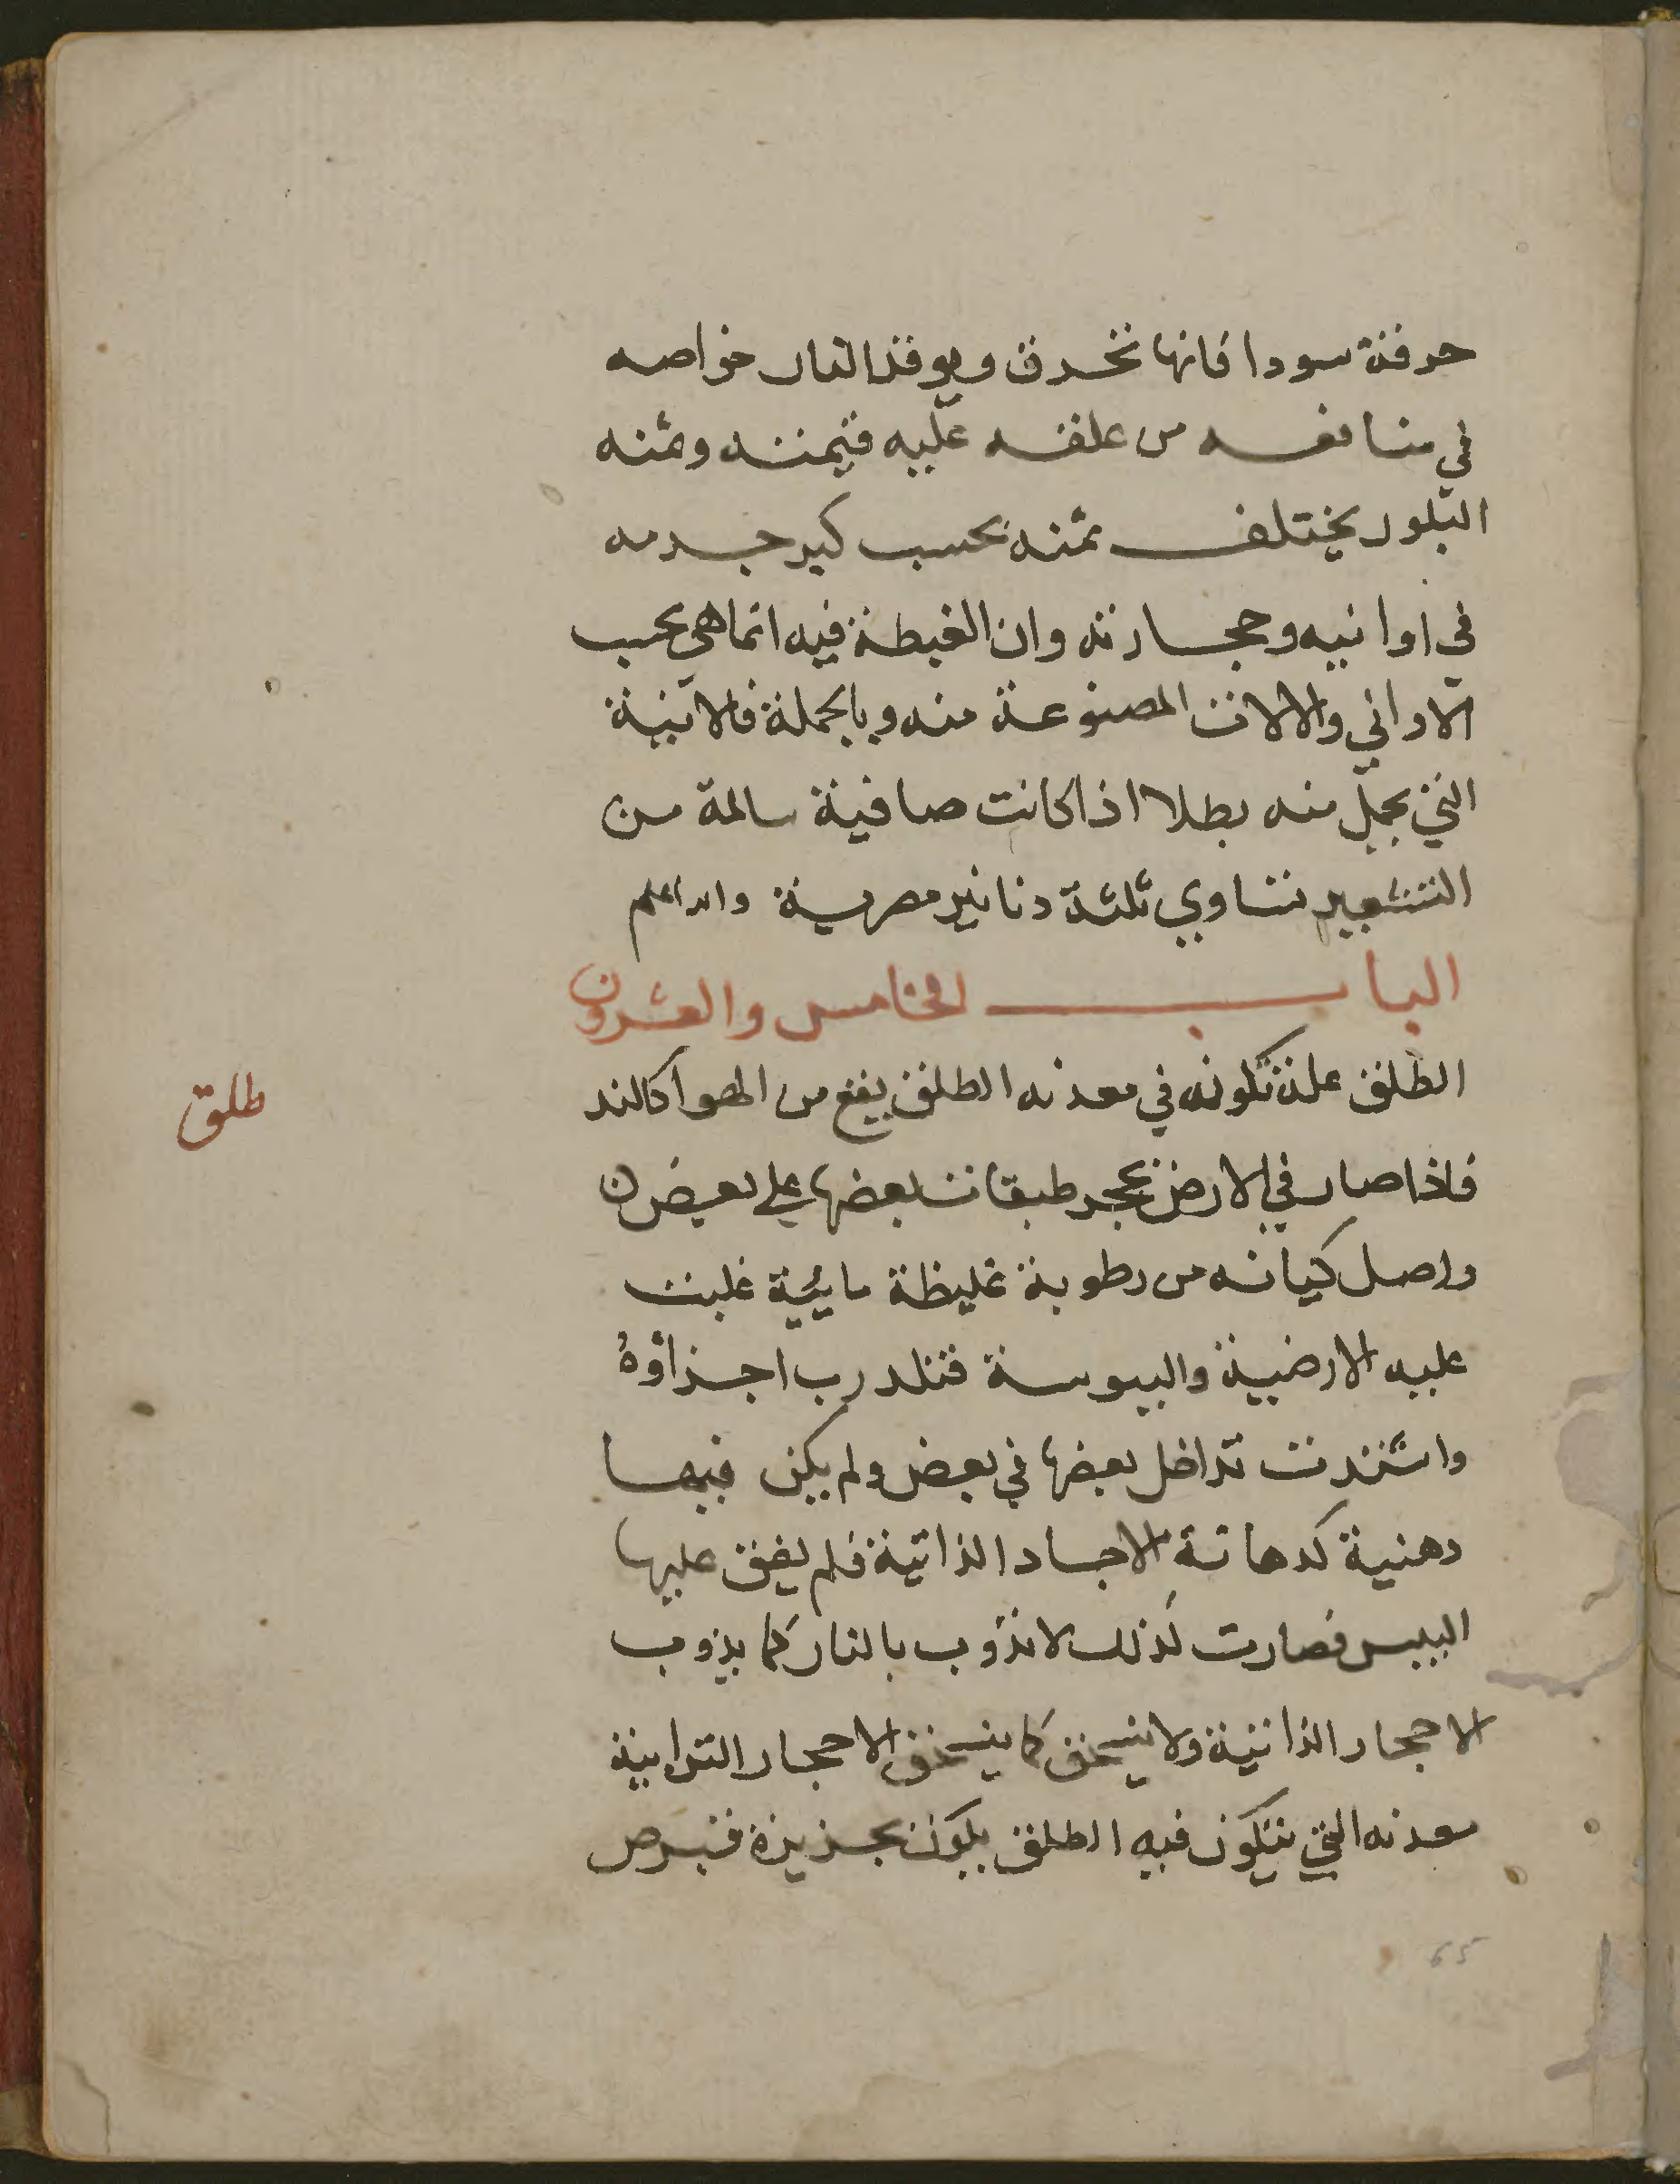 حرقة سودا فانها تحرق ويوقد النار خواصه
في منافعه من علقه عليه فيمنه وثمنه
البلور يختلف ثمنه بحسب كبر جرمه
في اوانيه وحجارته وان الغبطة فيه انما هي بحسب
الاواني والالات المصنوعة منه وبالجملة فالانية
التي منه بطلا اذا كانت صافية سالمة من
التشعير تساوي ثلثة دنانير مصرية والله اعلم
الباب الخامس والعشرون
الطلق علة تكونه في معدنه الطلق يقع من الهوا كالند
طلق
فاذا صار في الارض تحجر طبقات بعضها على بعض
واصل كيانه من رطوبة غليظة مايية غلبت
عليه الارضية واليبوسة اجزاؤهُ
واشتدت تداخل بعضها في بعض ولم يكن فيها
دهنية كدهانة الاجساد الذاتية فلم يفق عليها
اليبس فصارت لذلك لا تذوب بالنار كما يذوب
الاحجار الذاتية ولا ينسحق كما ينسحق الاحجار الترابية
معدنه التي يتكون فيه الطلق يكون بجزيرة قبرص
65